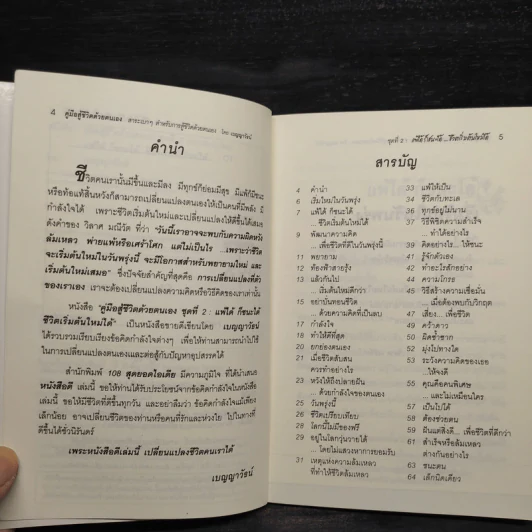 4 คู่มือสู้ชีวิตด้วยตนเอง สาระเบาๆ สำหรับการสู้ชีวิตด้วยตนเอง โดย เบญญาวัธน์
คำนำ
ชีวิตคนเรานั้นมีขึ้นและมีลง มีทุกข์ก็ย่อมมีสุข มีแพ้ก็มีชนะ
หรือท้อแท้สิ้นหวังก็สามารถเปลี่ยนแปลงตนเองให้เป็นคนที่มีพลัง มี
กำลังใจได้ เพราะชีวิตเริ่มต้นใหม่และเปลี่ยนแปลงให้ดีขึ้นได้เสมอ
ดังคำของ วิลาศ มณีวัต ที่ว่า "วันนี้เราอาจจะพบกับความผิดหวัง
ล้มเหลว พ่ายแพ้หรือเศร้าโศก แต่ไม่เป็นไร ...เพราะว่าชีวิต
จะเริ่มต้นใหม่ในวันพรุ่งนี้ จะมีโอกาสสำหรับพยายามใหม่ และ
เริ่มต้นใหม่เสมอ" ซึ่งปัจจัยสำคัญที่สุดคือ การเปลี่ยนแปลงที่ตัว
ของเราเอง เราจะต้องเปลี่ยนแปลงความคิดหรือวิธีคิดของเราเท่านั้น
หนังสือ "คู่มือสู้ชีวิตด้วยตนเอง ชุดที่ 2 : แพ้ได้ ก็ชนะได้
ชีวิตเริ่มต้นใหม่ได้" เป็นหนังสือรายดีเขียนโดย เบญญาวัธน์
ได้รวบรวมเรียบเรียงข้อคิดกำลังใจต่างๆ เพื่อให้ท่านนำไปใช้
ในการเปลี่ยนแปลงตนเองและต่อสู้กับปัญหาอุปสรรคได้
สำนักพิมพ์ 108 สุดยอดไอเดีย มีความภูมิใจ ที่ได้นำเสนอ
หนังสือดี เล่มนี้ ขอให้ท่านได้รับประโยชน์จากข้อคิดกำลังใจในหนังสือ
เล่มนี้ ขอให้มีชีวิตที่ดีขึ้นทุกวัน และอย่าลืมว่า ข้อคิดกำลังใจแม้เพียง
เล็กน้อย อาจเปลี่ยนชีวิตของท่านหรือคนที่รักและห่วงใย ไปในทางที่
ดีขึ้นได้ชั่วนิรันดร์
เพราะหนังสือดีเล่มนี้ เปลี่ยนแปลงชีวิตคนเราได้
เบญญาวัธน์
ชุดที่ 2 : แพ้ได้ ก็ชนะได้ ...ชีวิตเริ่มต้นใหม่ได้ 5
สารบัญ
4 คำนำ
6 เริ่มใหม่ในวันพรุ่งนี้
7 แพ้ได้ ก็ชนะได้
...ชีวิตเริ่มใหม่ได้
9 พัฒนาความคิด
...เพื่อชีวิตที่ดีในวันพรุ่งนี้
11 พยายาม
12 ท้องฟ้าสายรุ้ง
13 แล้วกันไป
...เริ่มต้นใหม่ดีกว่า
15 อย่าบั่นทอนชีวิต
...ด้วยความคิดที่เป็นลบ
17 กำลังใจ
18 ทำให้ดีที่สุด
20 ยกย่องตนเอง
21 เมื่อชีวิตสับสน
ควรทำอย่างไร
23 หวังให้ถึงปลายฝัน
...ด้วยกำลังใจของตนเอง
25 วันพรุ่งนี้
26 ชีวิตเปรียบเทียบ
28 โลกนี้ไม่มีของฟรี
29 อยู่ในโลกวุ่นวายได้
...โดยไม่แสวงหาการยอมรับ
31 เหตุแห่งความล้มเหลว
ที่ทำให้ชีวิตล้มเหลว
33 แพ้ให้เป็น
34 ชีวิตกับทะเล
36 ทุกข์อยู่ไม่นาน
37 วิธีพิชิตความสำเร็จ
...ทำได้อย่างไร
39 คิดอย่างไร... ให้ชนะ
41 รู้จักตัวเอง
42 ทำอะไรสักอย่าง
44 ความโกรธ
45 วิธีสร้างความเชื่อมั่น
...เมื่อต้องพบกับวิกฤต
47 เสี่ยง... เพื่อชีวิต
49 คว้าดาว
50 ผิดซ้ำซาก
52 มุ่งไปทางใด
53 ระวังความคิดของเธอ
ให้จงดี
55 คุณคือคนพิเศษ
...และไม่เหมือนใคร
57 เป็นไปได้
58 ต้องช่วยตน
59 ฝันแต่สิ่งดี... เพื่อชีวิตที่ดีกว่า
61 สำเร็จหรือล้มเหลว
ต่างกันอย่างไร
63 ชนะตน
64 เด็กนิดเดียว